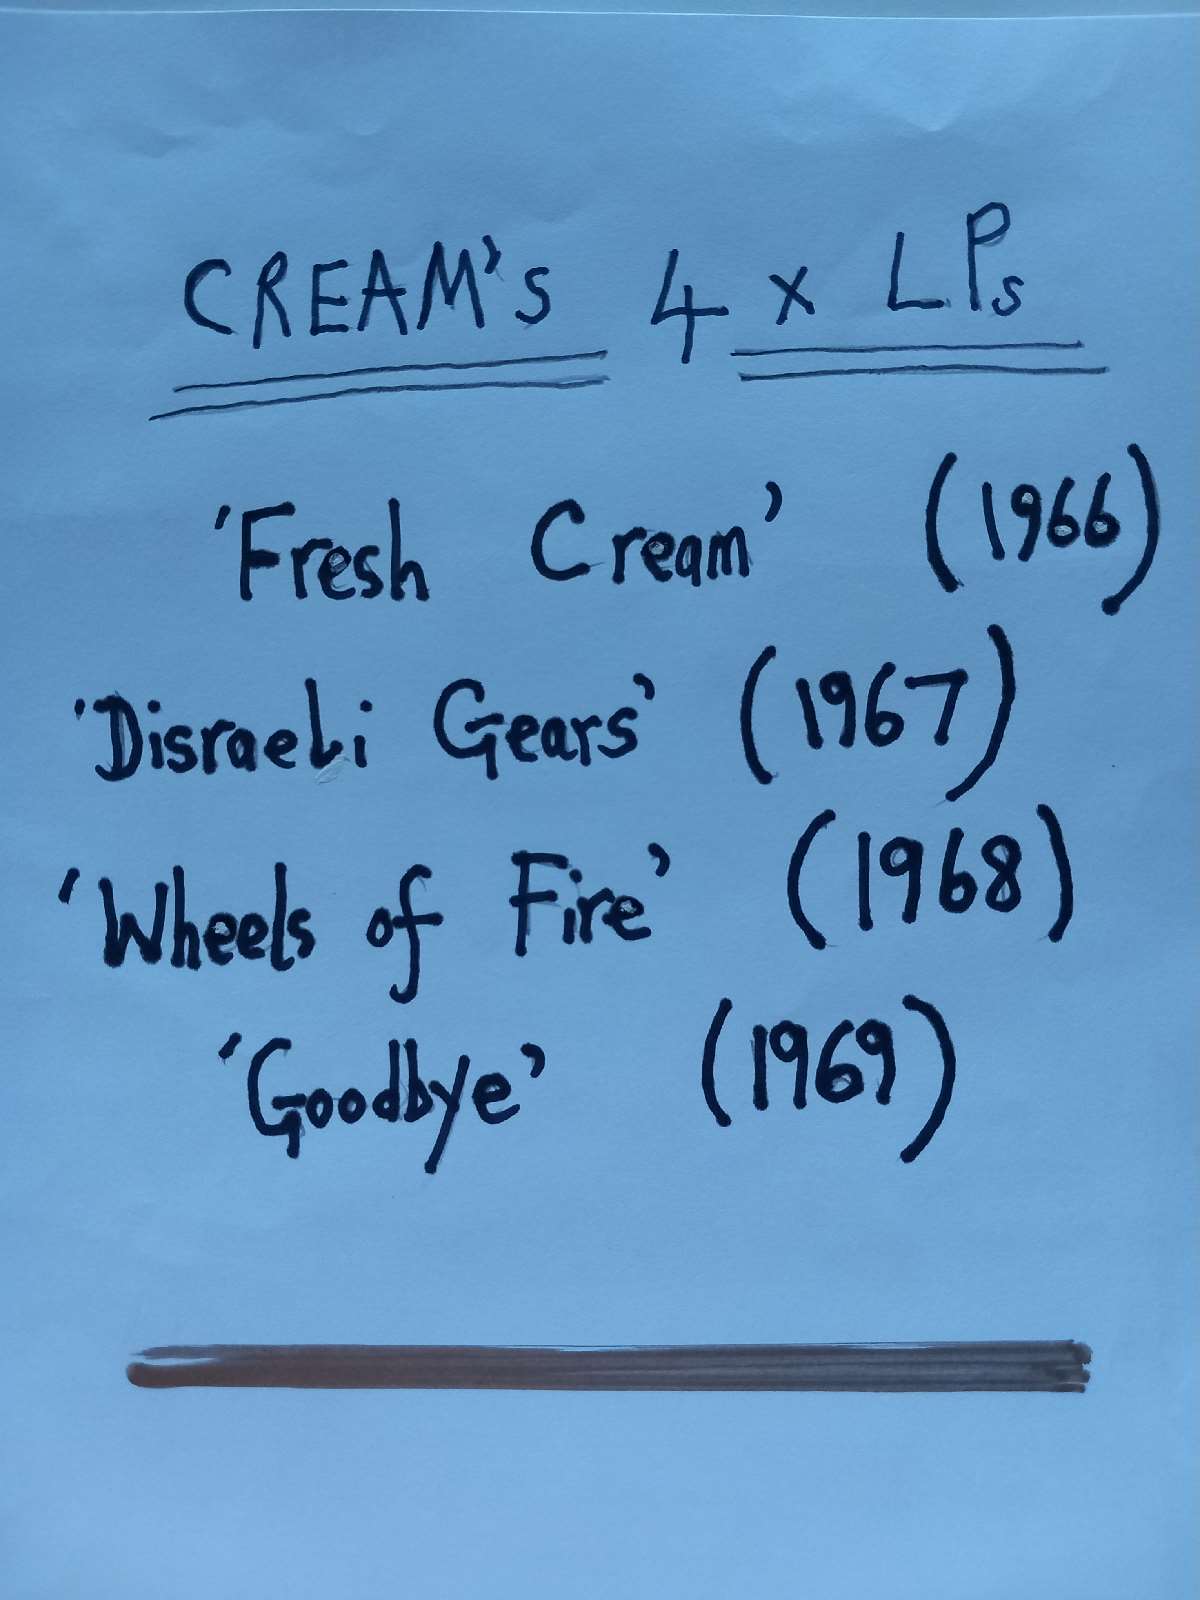 CREAM's 4 x LPs
'Fresh Cream' (1966)
'Disraeli Gears' (1967)
'Wheels of Fire' (1968)
'Goodbye' (1969)